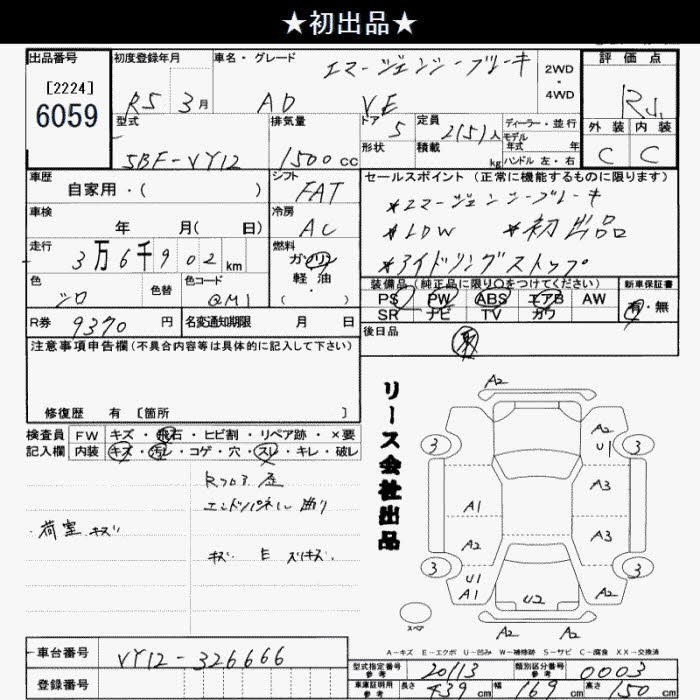 ★初出品★
出品番号
[2224]
6059
初度登録年月
R5 3月
車名・グレード
エマージェンシーブレーキ
AD VE
2WD
・
4WD
評価点
R
外装 内装
C C
型式
5BF-VY12
排気量
1500cc
ドア
5
形状
定員
2(5)人
積載
kg
ディーラー・並行
モデル
年式 年
ハンドル 左・右
車歴
自家用・( )
シフト
FAT
セールスポイント (正常に機能するものに限ります)
*エマージェンシーブレーキ
*LDW *初出品
*アイドリングストップ
車検
年 月( 日)
冷房
AC
走行
3万6千902km
燃料
ガソリン
軽油
( ・ )
色
シロ
色替
色コード
QM1
装備品 (純正品に限り○をつけてください)
PS PW ABS エアB AW
SR ナビ TV カワ
新車保証書
有・無
R券
9370円
名変通知期限 月 日
後日品
取
注意事項申告欄(不具合内容等は具体的に記入して下さい)
修復歴 有 [箇所 ]
検査員 FW キズ・飛石・ヒビ割・リペア跡・×要
記入欄 内装 キズ・汚レ・コゲ・穴・スレ・キレ・破レ
Rフロア 歪
エンドパネル 曲り
荷室 キズ
キズ E スリキズ
リース会社出品
A2
3
A2
U1
3
A1
A3
A2
A3
3
U1
A1
U2
A2
3
A2 A2
スペア
A-キズ E-エクボ U-凹み W-補修跡 S-サビ C-腐食 XX-交換済
車台番号
VY12-326666
登録番号
型式指定番号
参考
20113
類別区分番号
参考
0003
車庫証明用
参考
長さ
439cm
幅
169cm
高さ
150cm